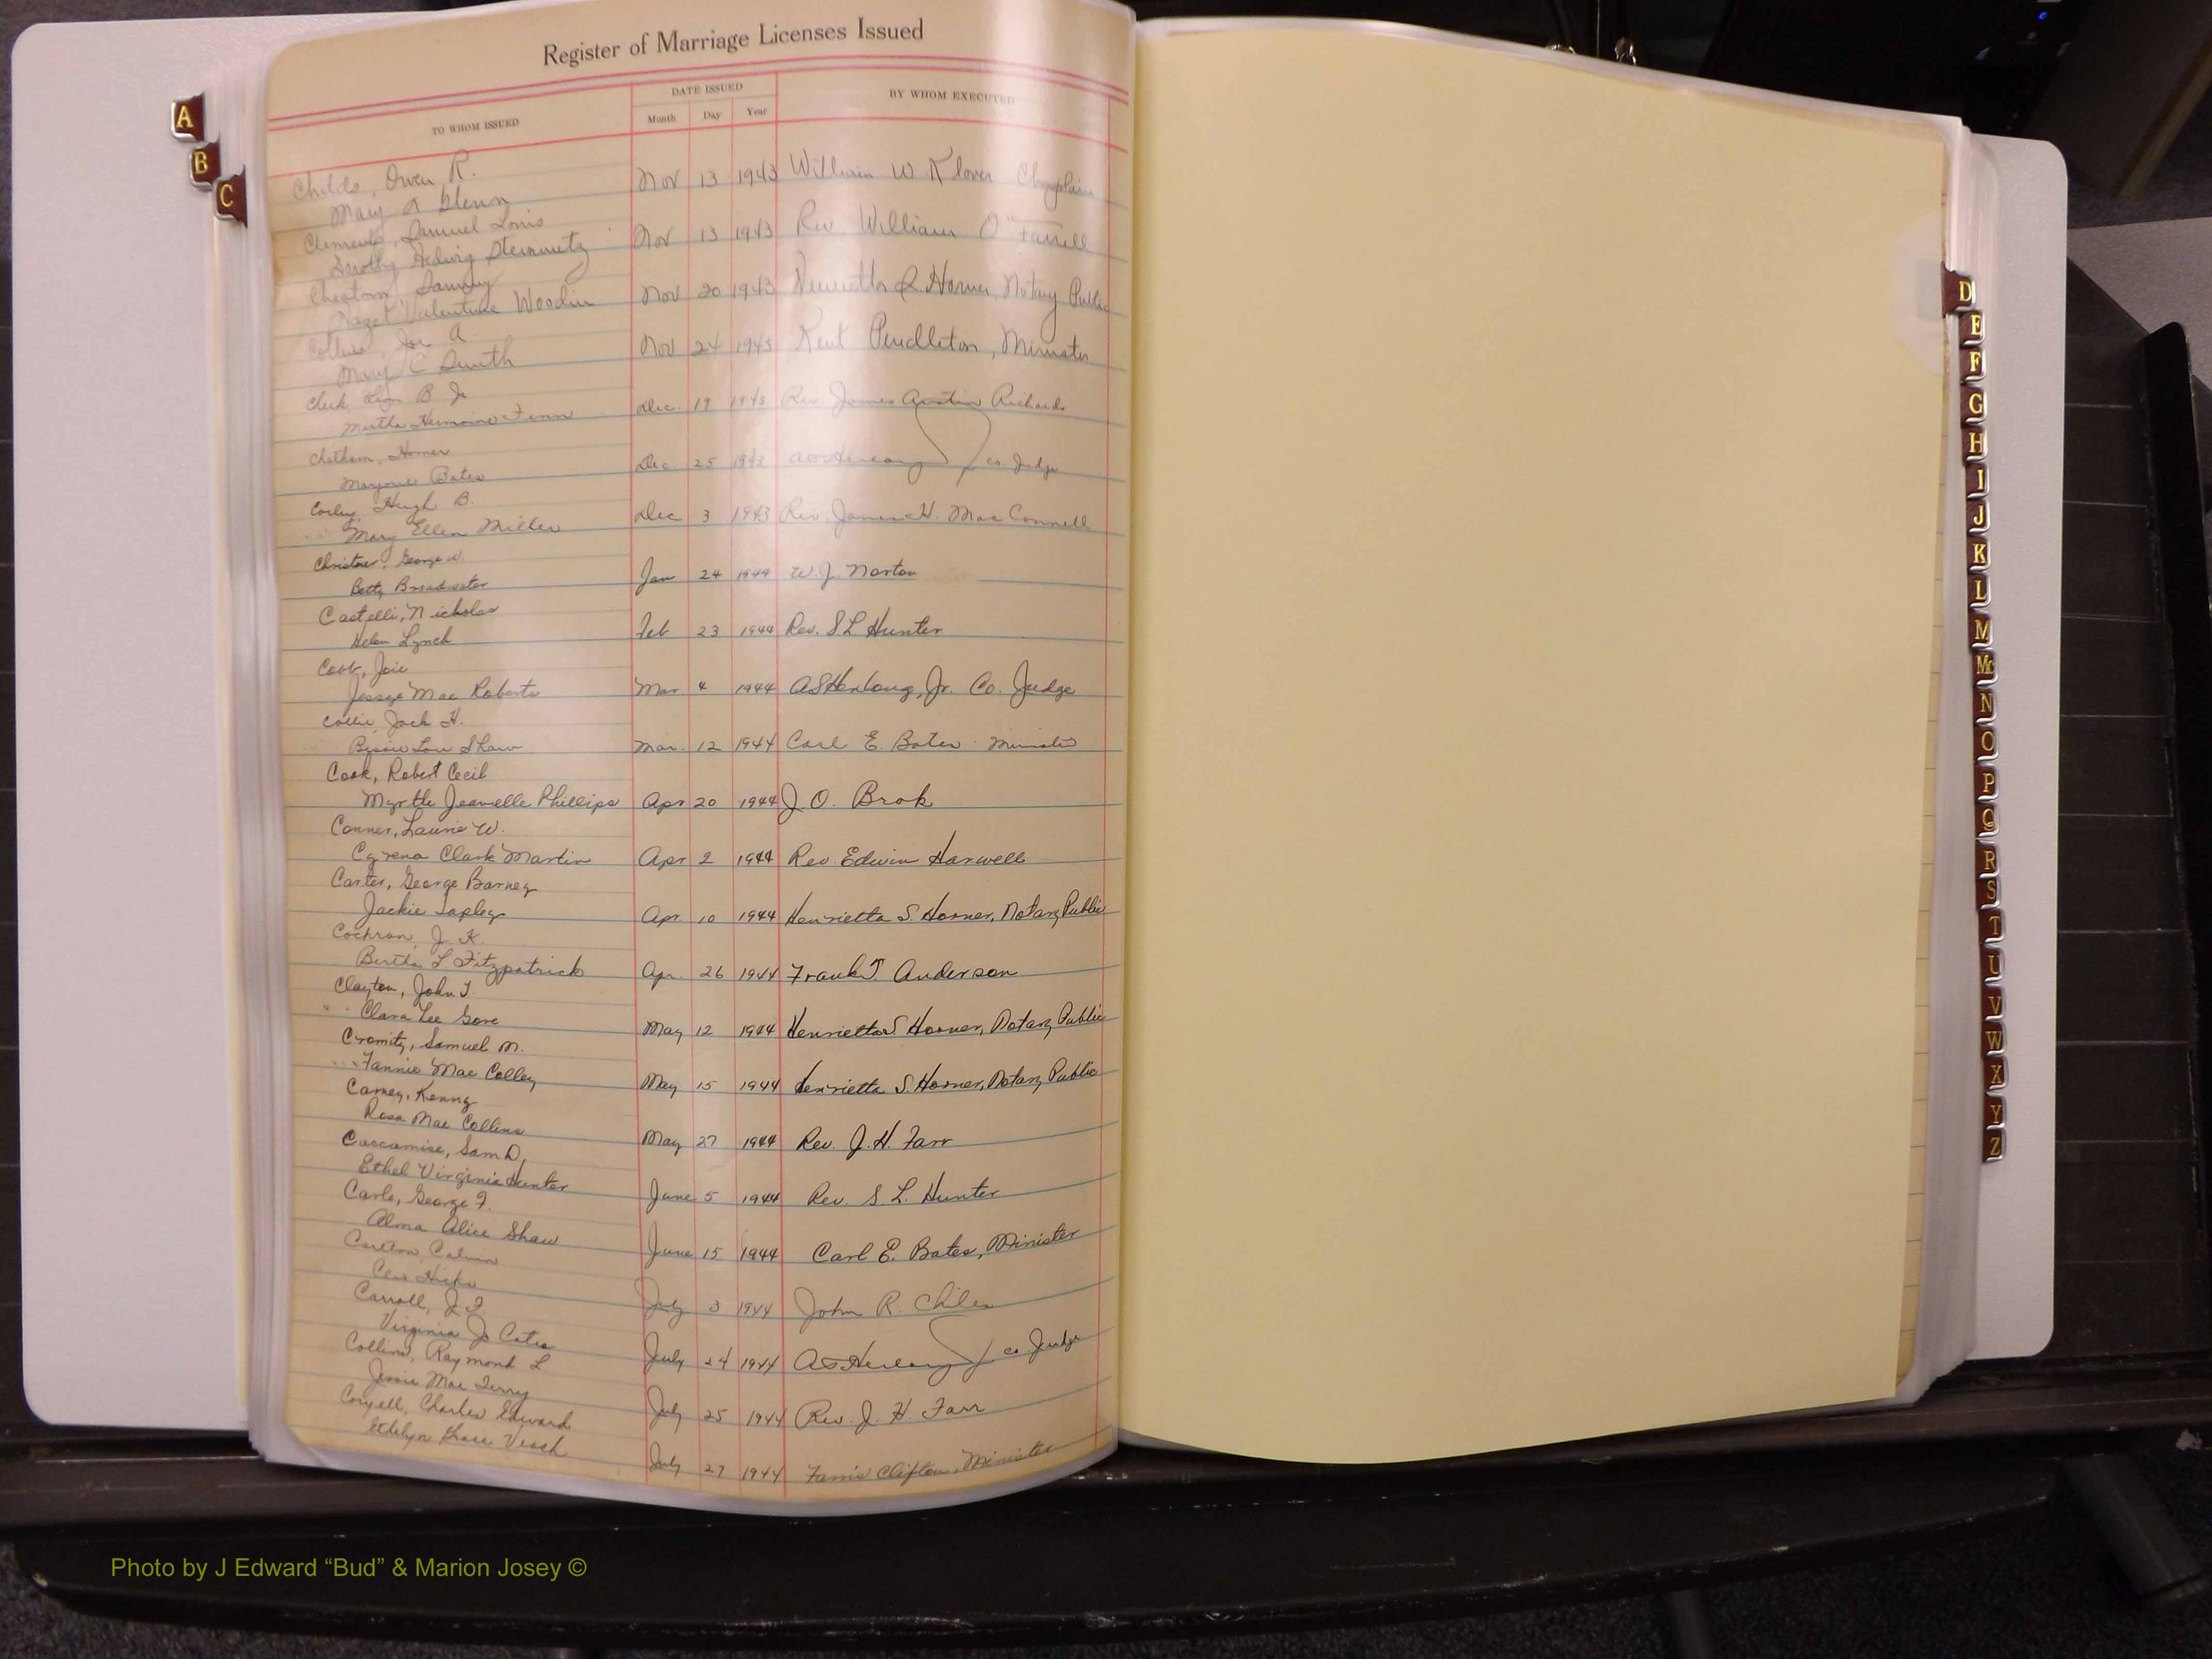 Register of Marriage Licenses Issued
TO WHOM ISSUED
DATE ISSUED
BY WHOM EXECUTED
Month Day Year
A
B
C
Childs, Owen R. Nov 13 1943 William W Klover Chaplain
Mary A Glenn
Clements, Samuel Louis Nov 13 1943 Rev William O'Farrell
Dorothy Hedwig Steinmetz
Cheatom, Sammy Nov 20 1943 Henrietta S Horner, Notary Public
Hazel Valentine Woodin
Collins, Joe A. Nov 24 1943 Kent Pendleton, Minister
Mary C Smith
Leon B Jr Dec. 19 1943 Rev James Austin Richards
Martha Hermoine Fenn
Chatham, Homer Dec. 25 1943 Co. Judge
Marjorie Bates
Corley, Hugh B. Dec 3 1943 Rev. James H. MacConnell
Mary Ellen Miller
Christner, George W.
Betty Broadwater Jan 24 1944 W. J. Norton
Castelli, Nicholas
Helen Lynch Feb 23 1944 Rev. S L Hunter
Cobb, Joie
Jessye Mae Roberts Mar 4 1944 A S Herlong, Jr. Co. Judge
Collie, Jack H.
Bessie Lou Shaw Mar. 12 1944 Carl E. Bates Minister
Cook, Robert Cecil
Myrtle Jeanelle Phillips Apr 20 1944 J. O. Brok
Conner, Laurie W.
Cyrena Clark Martin Apr 2 1944 Rev. Edwin Harwell
Carter, George Barney
Jackie Tapley Apr 10 1944 Henrietta S. Horner, Notary Public
Cochran, J. K.
Bertha L Fitzpatrick Apr. 26 1944 Frank T. Anderson
Clayton, John T.
Clara Lee Gore May 12 1944 Henrietta S Horner, Notary Public
Cromity, Samuel M.
Fannie Mae Colley May 15 1944 Henrietta S. Horner, Notary Public
Camey, Kenny
Rosa Mae Collins May 27 1944 Rev. J. H. Farr
Caccamise, Sam D,
Ethel Virginia Hunter June 5 1944 Rev. S. L. Hunter
Carle, George F.
Alma Alice Shaw June 15 1944 Carl E. Bates, Minister
Carlton, Calvin
Cleo Hicks July 3 1944 John R. Chiles
Carroll, J. F.
Virginia Jo Cates July 24 1944 A S Herlong Jr co Judge
Collins, Raymond L
Jessie Mae Terry July 25 1944 Rev. J. H. Farr
Coryell, Charles Edward
Ethelyn Veach July 27 1944 Farris Clifton, Minister
D
E
F
G
H
I
J
K
L
M
Mc
N
O
P
Q
R
S
T
U
V
W
X
Y
Z
Photo by J Edward “Bud” & Marion Josey ©